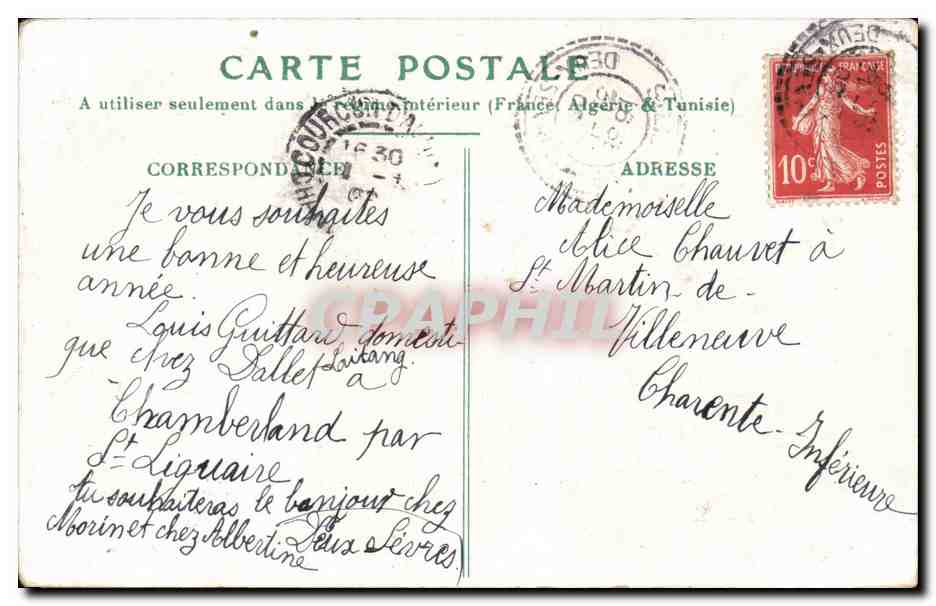 CARTE POSTALE
A utiliser seulement dans le régime intérieur (France, Algérie & Tunisie)
CORRESPONDANCE
Je vous souhaites
une bonne et heureuse
année.
Louis Guittard domesti-
que chez Dallet Laitang.
à
Chamberland par
St Liguaire
tu souhaiteras le bonjour chez
Morin et chez Albertine
Deux Sèvres
ADRESSE
Mademoiselle
Alice Chauvet à
St Martin-de-
Villeneuve
Charente-Inférieure
FRANÇAISE
10c
POSTES
COURÇON D'A
16 30
DEUX
CPAPHIL